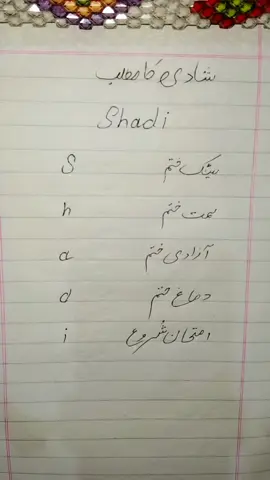 شادی کا مطلب
Shadi
S ختم
h ہمت ختم
a آزادی ختم
d دماغ ختم
i امتحان شروع